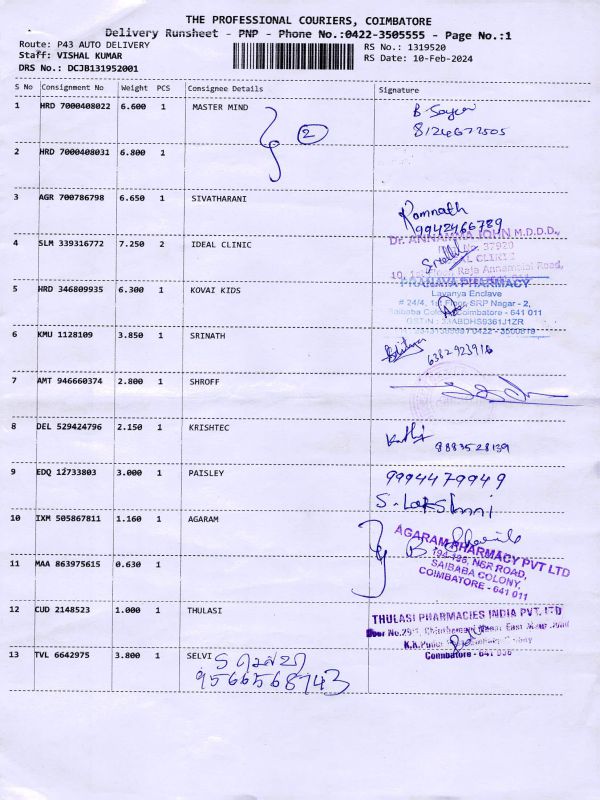 THE PROFESSIONAL COURIERS, COIMBATORE
Delivery Runsheet - PNP - Phone No.:0422-3505555 - Page No.:1
Route: P43 AUTO DELIVERY RS No.: 1319520
Staff: VISHAL KUMAR RS Date: 10-Feb-2024
DRS No.: DCJB131952001
S No Consignment No Weight PCS Consignee Details Signature
1 HRD 7000408022 6.600 1 MASTER MIND
2
8124677505
2 HRD 7000408031 6.800 1
3 AGR 700786798 6.650 1 SIVATHARANI Ramnath
9942466789
Dr. ANNAMMA JOHN M.D.D.D.,
No. 37920
4 SLM 339316772 7.250 2 IDEAL CLINIC
10, Raja Annamalai Road,
PRANAVA PHARMACY
5 HRD 346809935 6.300 1 KOVAI KIDS Lavanya Enclave
# 24/4, 1st Floor, SRP Nagar - 2,
Saibaba Colony, Coimbatore - 641 011
6 KMU 1128109 3.850 1 SRINATH
6382923916
7 AMT 946660374 2.800 1 SHROFF
8 DEL 529424796 2.150 1 KRISHTEC
8883528139
9 EDQ 12733803 3.000 1 PAISLEY 9994479949
S. Lakshmi
10 IXM 505867811 1.160 1 AGARAM
AGARAM PHARMACY PVT LTD
194-196, NSR ROAD,
SAIBABA COLONY,
COIMBATORE - 641 011
11 MAA 863975615 0.630 1
12 CUD 2148523 1.000 1 THULASI THULASI PHARMACIES INDIA PVT. LTD
Coimbatore - 641 038
13 TVL 6642975 3.800 1 SELVI
9566568743